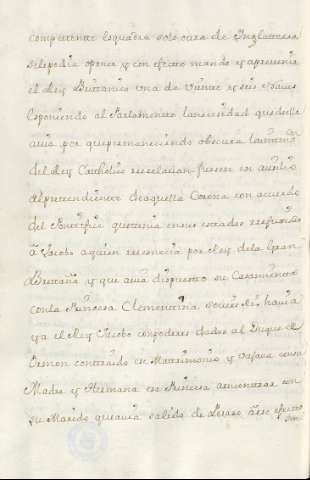 competente esquadra solo era de Inglaterra
sele podia oponer y con efecto mando aprevenir
el Rey Brittanico una de Veinte y seis Navios
Exponiendo al Parlamento la necesidad que de ella
avia por que permaneciendo obscura la intencion
del Rey Catholico recelavan fuesen en auxilio
del pretendiente de aquella Corona con acuerdo
del Pontifice que tenia en sus estados refugiado
à Jacobo a quien reconocia por Rey dela Gran
Bretaña y que avia dispuesto su Casamiento
con la Princesa Clementina Sobieski havia
ya el Rey Jacobo con poderes dados al Duque de
Ormon contraido el Matrimonio y
Madre y Hermana la Princesa a encontrar con
su Marido que avia salido de Pesaro à este efecto